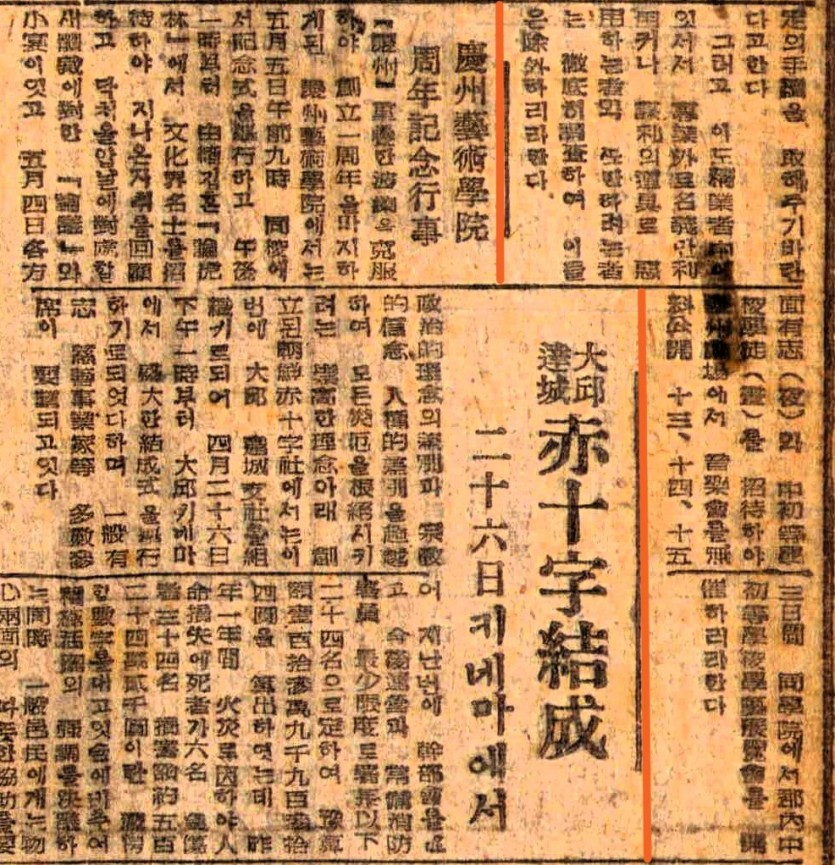 定의手續을 取해주기바란
다고한다
그리고 이도精業者中에
잇서서 事業外로名義만利
用커나 謀利의道具로 惡
用하는者와 또한하려는者
는 徹底히調査하여 이를
은除外하리라한다
慶州藝術學院
周年記念行事
『慶州』 重疊한波瀾을克服
하야 創立一周年을마지하
게된 慶州藝術學院에서는
五月五日午前九時 同校에
서記念式을擧行하고 午後
一時부터 由緖깁흔『論虎
林』에서 文化界名士를招
待하야 지나온자최를回顧
하고 닥처올압날에對處할
새構成에對한 『論議』와
小宴이잇고 五月四日各方
面有志(夜)와 中初等學
校學徒(晝)를 招待하야
慶州劇場에서 音樂會를無
料公開 十三、十四、十五
三日間 同學院에서郡內中
初等學校學藝展覽會를 開
催하리라한다
大邱
達城
赤十字結成
二十六日키네마에서
政治的理念의深刻과 宗敎
的信念 人種的差別을超越
하여 모든災厄을根絕시키
려는 崇高한理念아래 創
立된朝鮮赤十字社에서는이
번에 大邱 達城支社를組
織키로되어 四月二十六日
下午一時부터 大邱키네마
에서 盛大한結成式을擧行
하기로되엇다하며 一般有
志 慈善事業家等 多數參
席이 要望되고잇다
어 지난번에 幹部會를열
고 今後運營과 常備消防
署員 最少限度로署長以下
二十四名으로定하여 豫算
額壹百拾參萬九千九百拾
四圓을 算出하엿는데 昨
年一年間 火災로因하야人
命損失에死者가六名
者三十四名 損害額約五百
二十四萬貳千圓이란
한數字를내고잇슴에비추어
는同時 一般邑民에게는物
心兩面의 따뜻한協助를要